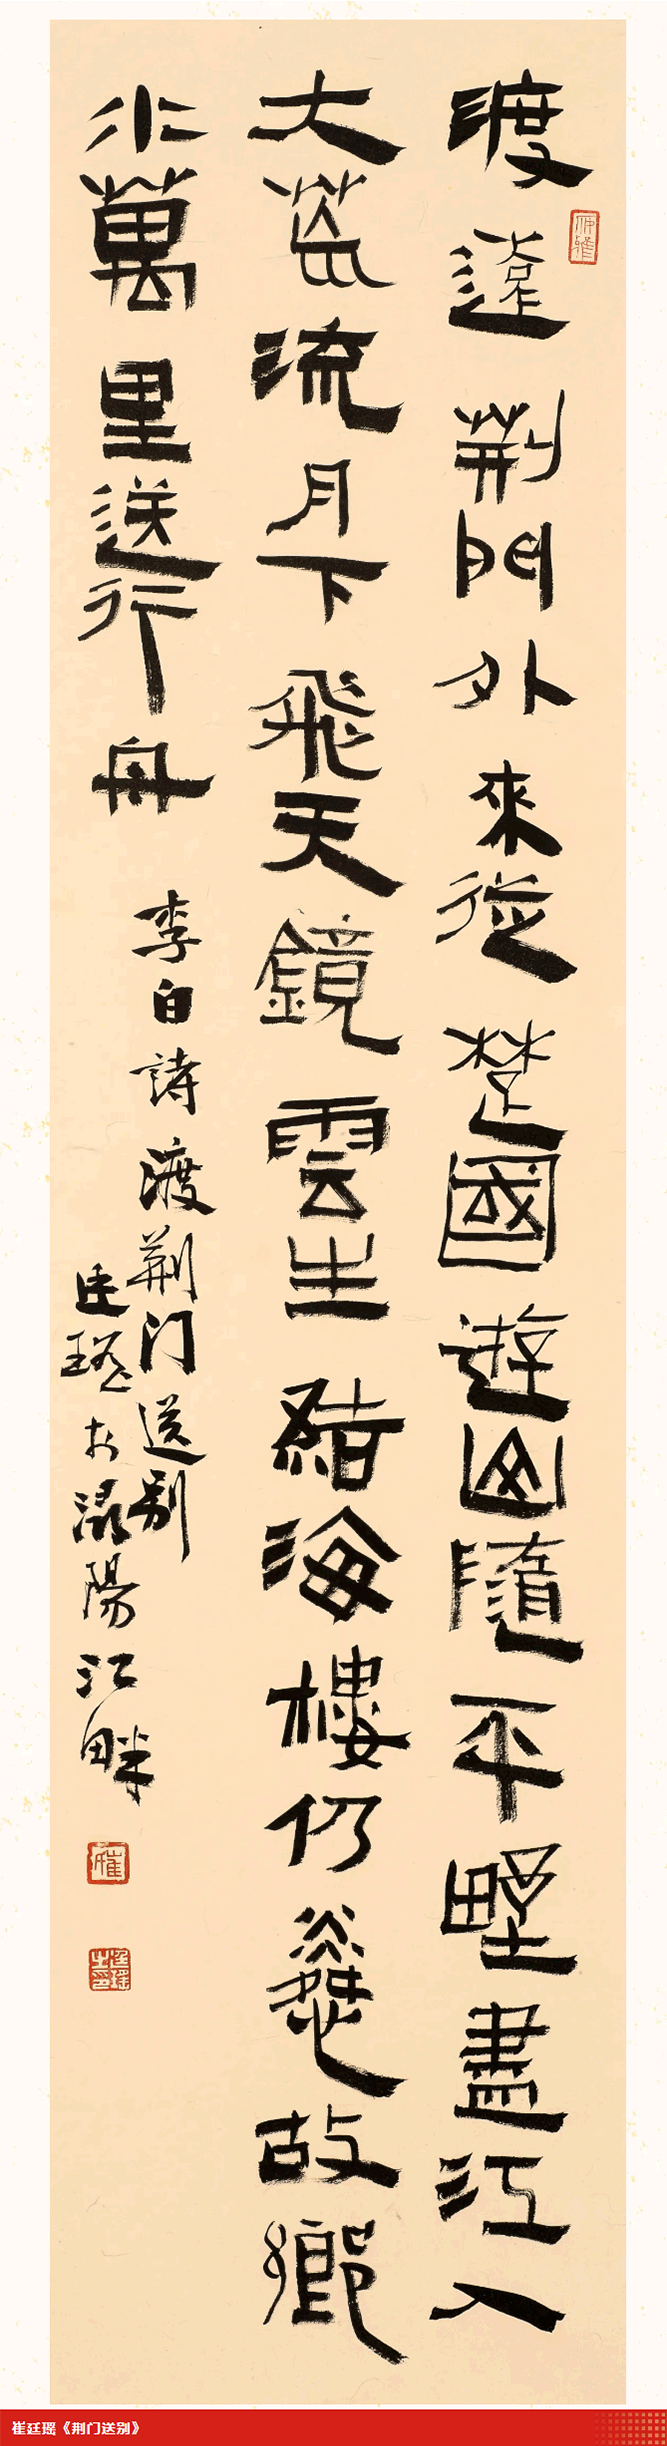 渡遠荆門外來從楚國遊山隨平野盡江入
大荒流月下飛天鏡雲生結海樓仍憐故鄉
水萬里送行舟
李白詩渡荆门送别
廷瑶於陽江畔
崔
崔廷瑶《荆门送别》